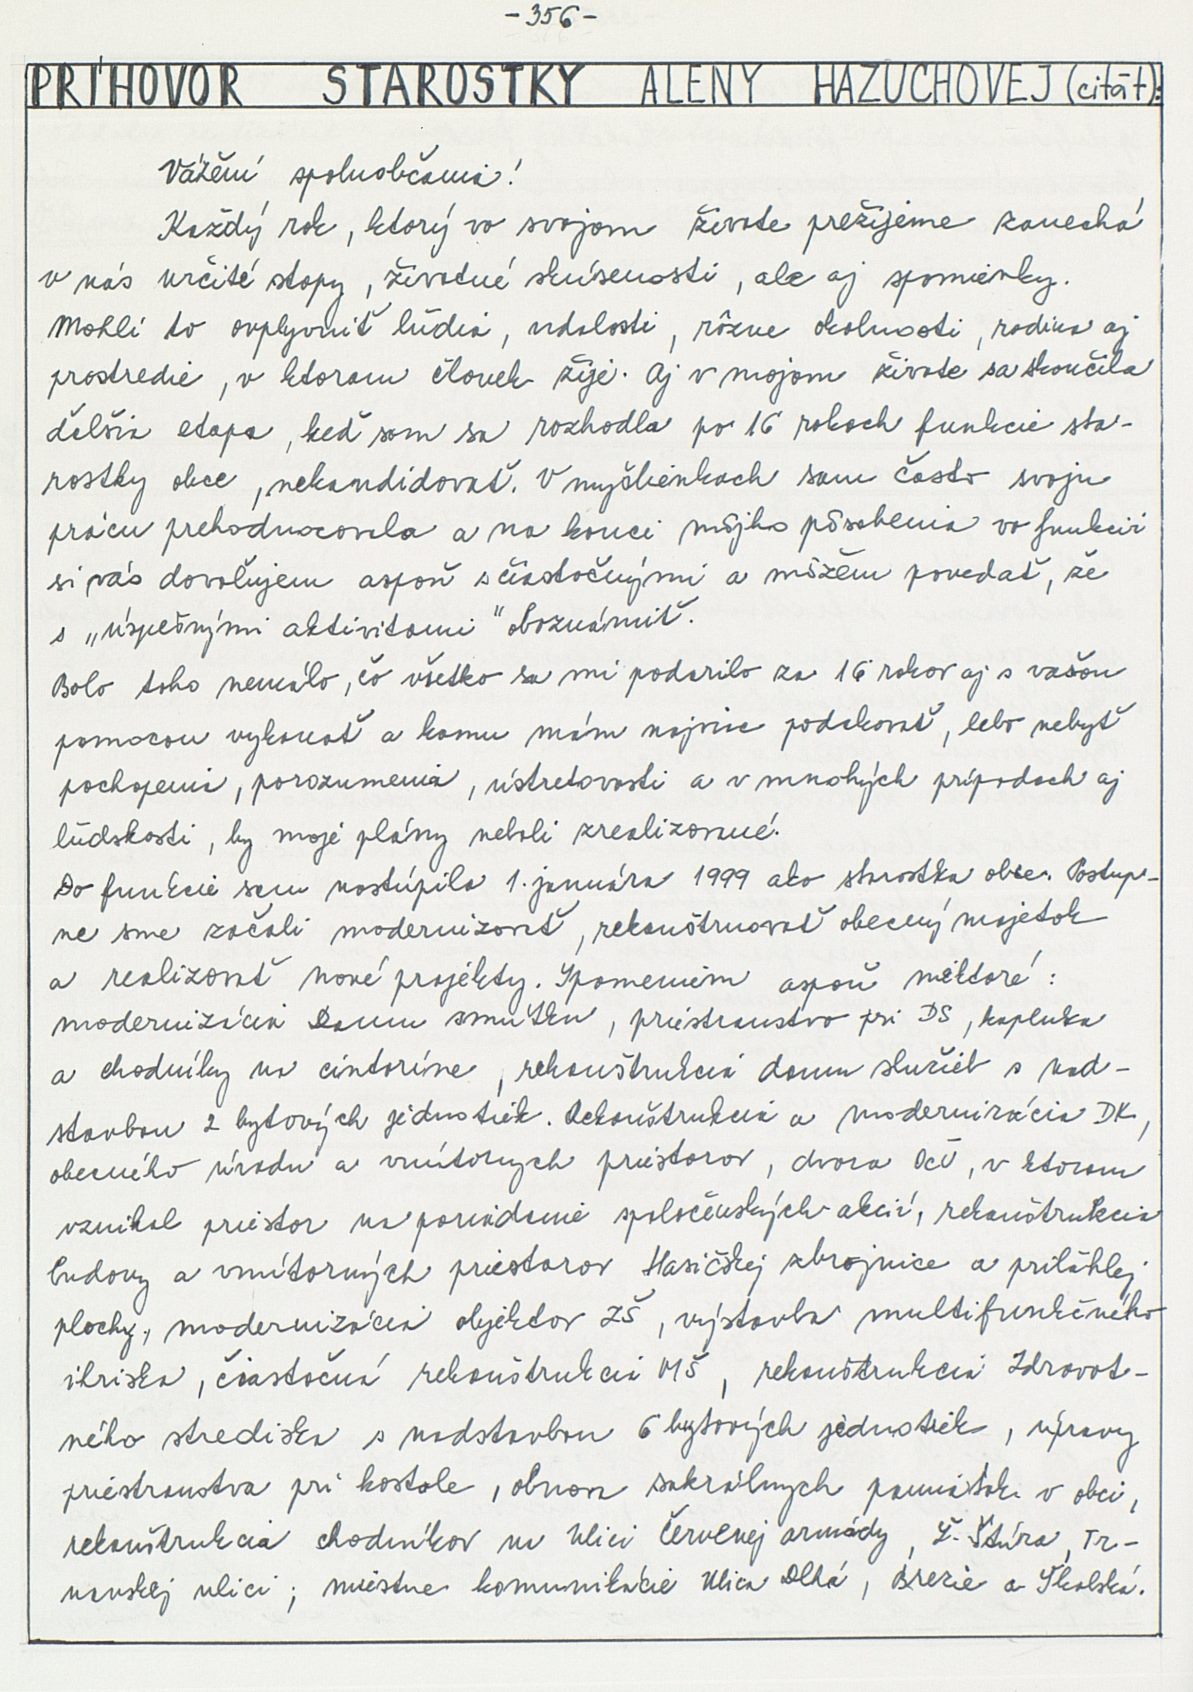 - 356 -
PRÍHOVOR STAROSTKY ALENY HAZUCHOVEJ (citát):
Vážení spoluobčania!
Každý rok, ktorý vo svojom živote prežijeme zanechá
v nás určité stopy, životné skúsenosti, ale aj spomienky.
Mohli to ovplyvniť ľudia, udalosti, rôzne okolnosti, rodina aj
prostredie, v ktorom človek žije. Aj v mojom živote sa skončila
ďalšia etapa, keď som sa rozhodla po 16 rokoch funkcie sta-
rostky obce, nekandidovať. V myšlienkach som často svoju
prácu prehodnocovala a na konci môjho pôsobenia vo funkcii
si vás dovoľujem aspoň s čiastočnými a môžem povedať, že
s „úspešnými aktivitami" oboznámiť.
Bolo toho nemálo, čo všetko sa mi podarilo za 16 rokov aj s vašou
pomocou vykonať a komu mám najviac poďakovať, lebo nebyť
pochopenia, porozumenia, ústretovosti a v mnohých prípadoch aj
ľudskosti, by moje plány neboli zrealizované.
Do funkcie som nastúpila 1. januára 1999 ako starostka obce. Postup-
ne sme začali modernizovať, rekonštruovať obecný majetok
a realizovať nové projekty. Spomeniem aspoň niektoré:
modernizácia Domu smútku, priestranstvo pri DS, kaplnka
a chodníky na cintoríne, rekonštrukcia domu služieb s nad-
stavbou 2 bytových jednotiek. Rekonštrukcia a modernizácia DK,
obecného úradu a vnútorných priestorov, dvora OcÚ, v ktorom
vznikol priestor na poriadanie spoločenských akcií, rekonštrukcia
budovy a vnútorných priestorov Hasičskej zbrojnice a priľahlej
plochy, modernizácia objektov ZŠ, výstavba multifunkčného
ihriska, čiastočná rekonštrukcia MŠ, rekonštrukcia Zdravot-
ného strediska s nadstavbou 6 bytových jednotiek, úpravy
priestranstva pri kostole, obnova sakrálnych pamiatok v obci,
rekonštrukcia chodníkov na Ulici Červenej armády, Ľ. Štúra, Tr-
navskej ulici; miestne komunikácie Ulica Dlhá, Brezie a Školská.